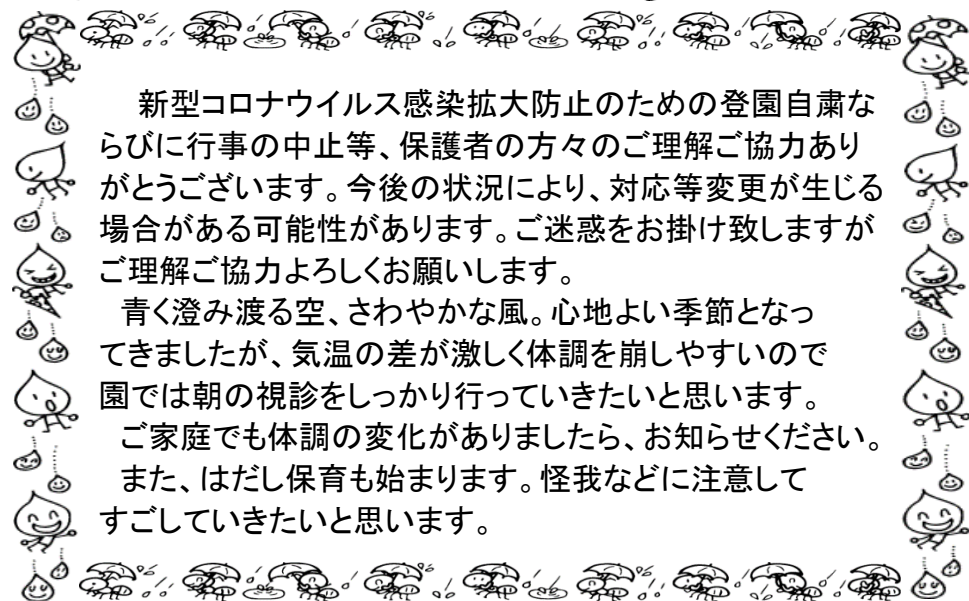 新型コロナウイルス感染拡大防止のための登園自粛な
らびに行事の中止等、保護者の方々のご理解ご協力あり
がとうございます。今後の状況により、対応等変更が生じる
場合がある可能性があります。ご迷惑をお掛け致しますが
ご理解ご協力よろしくお願いします。
青く澄み渡る空、さわやかな風。心地よい季節となっ
てきましたが、気温の差が激しく体調を崩しやすいので
園では朝の視診をしっかり行っていきたいと思います。
ご家庭でも体調の変化がありましたら、お知らせください。
また、はだし保育も始まります。怪我などに注意して
すごしていきたいと思います。